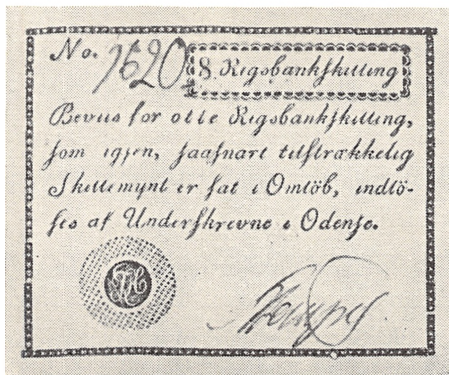 No. 7620 8 Rigsbankskilling
Beviis for otte Rigsbankskilling,
som igjen, saasnart tilstrækkelig
Skillemynt er sat i Omlöb, indlö-
ses af Underskrevne i Odense.
Hempel